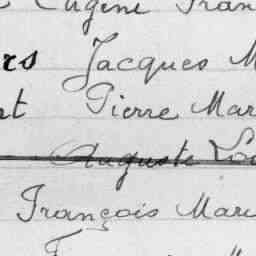 Eugène Fran
rs Jacques M
rt Pierre Mar
Auguste Lou
François Mari